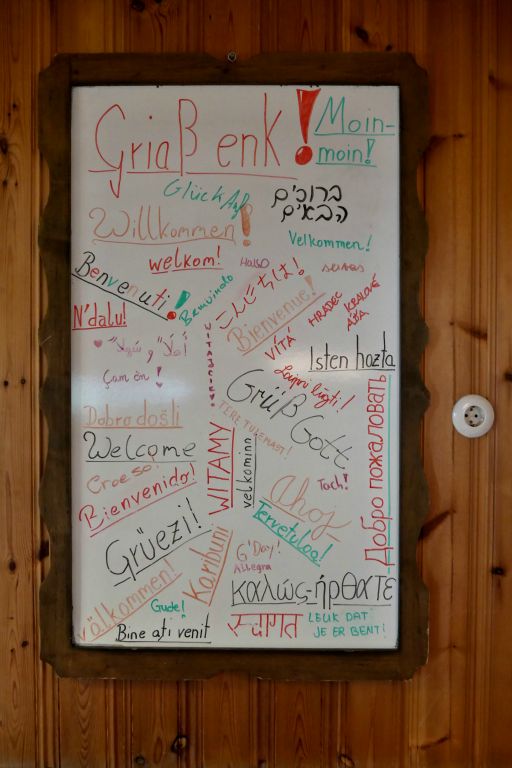 Griaß enk!
Moin-
moin!
Glück Auf
ברוכים
הבאים
Willkommen!
Velkommen!
welkom!
Benvenuti!
Bemvindo
こんにちは!
Bienvenue!
HRADEC
KRÁLOVÉ
N'dalu!
VÍTÁ
Isten hozta
أهلاً و سهلاً
Çam ên!
Laipni lūgti!
Grüß
Gott
Dobro došli
TERE TULEMAST!
Welcome
WITAMY
velkominn
Добро пожаловать
Croeso!
Bienvenido!
Toch!
Ahoj
Tervetuloa!
Grüezi!
Karibuni
G'Day!
Allegra
välkommen!
καλώς-ήρθατε
Gude!
स्वागत
LEUK DAT
JE ER BENT!
Bine ați venit